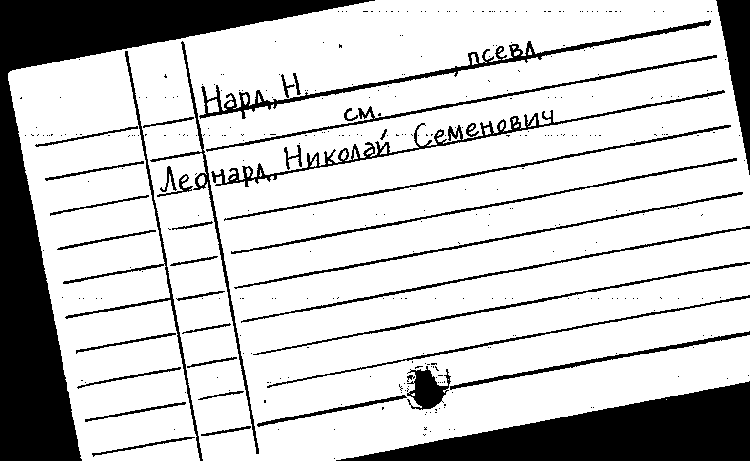 Нард, Н. , псевд.
см.
Леонард, Николай Семенович